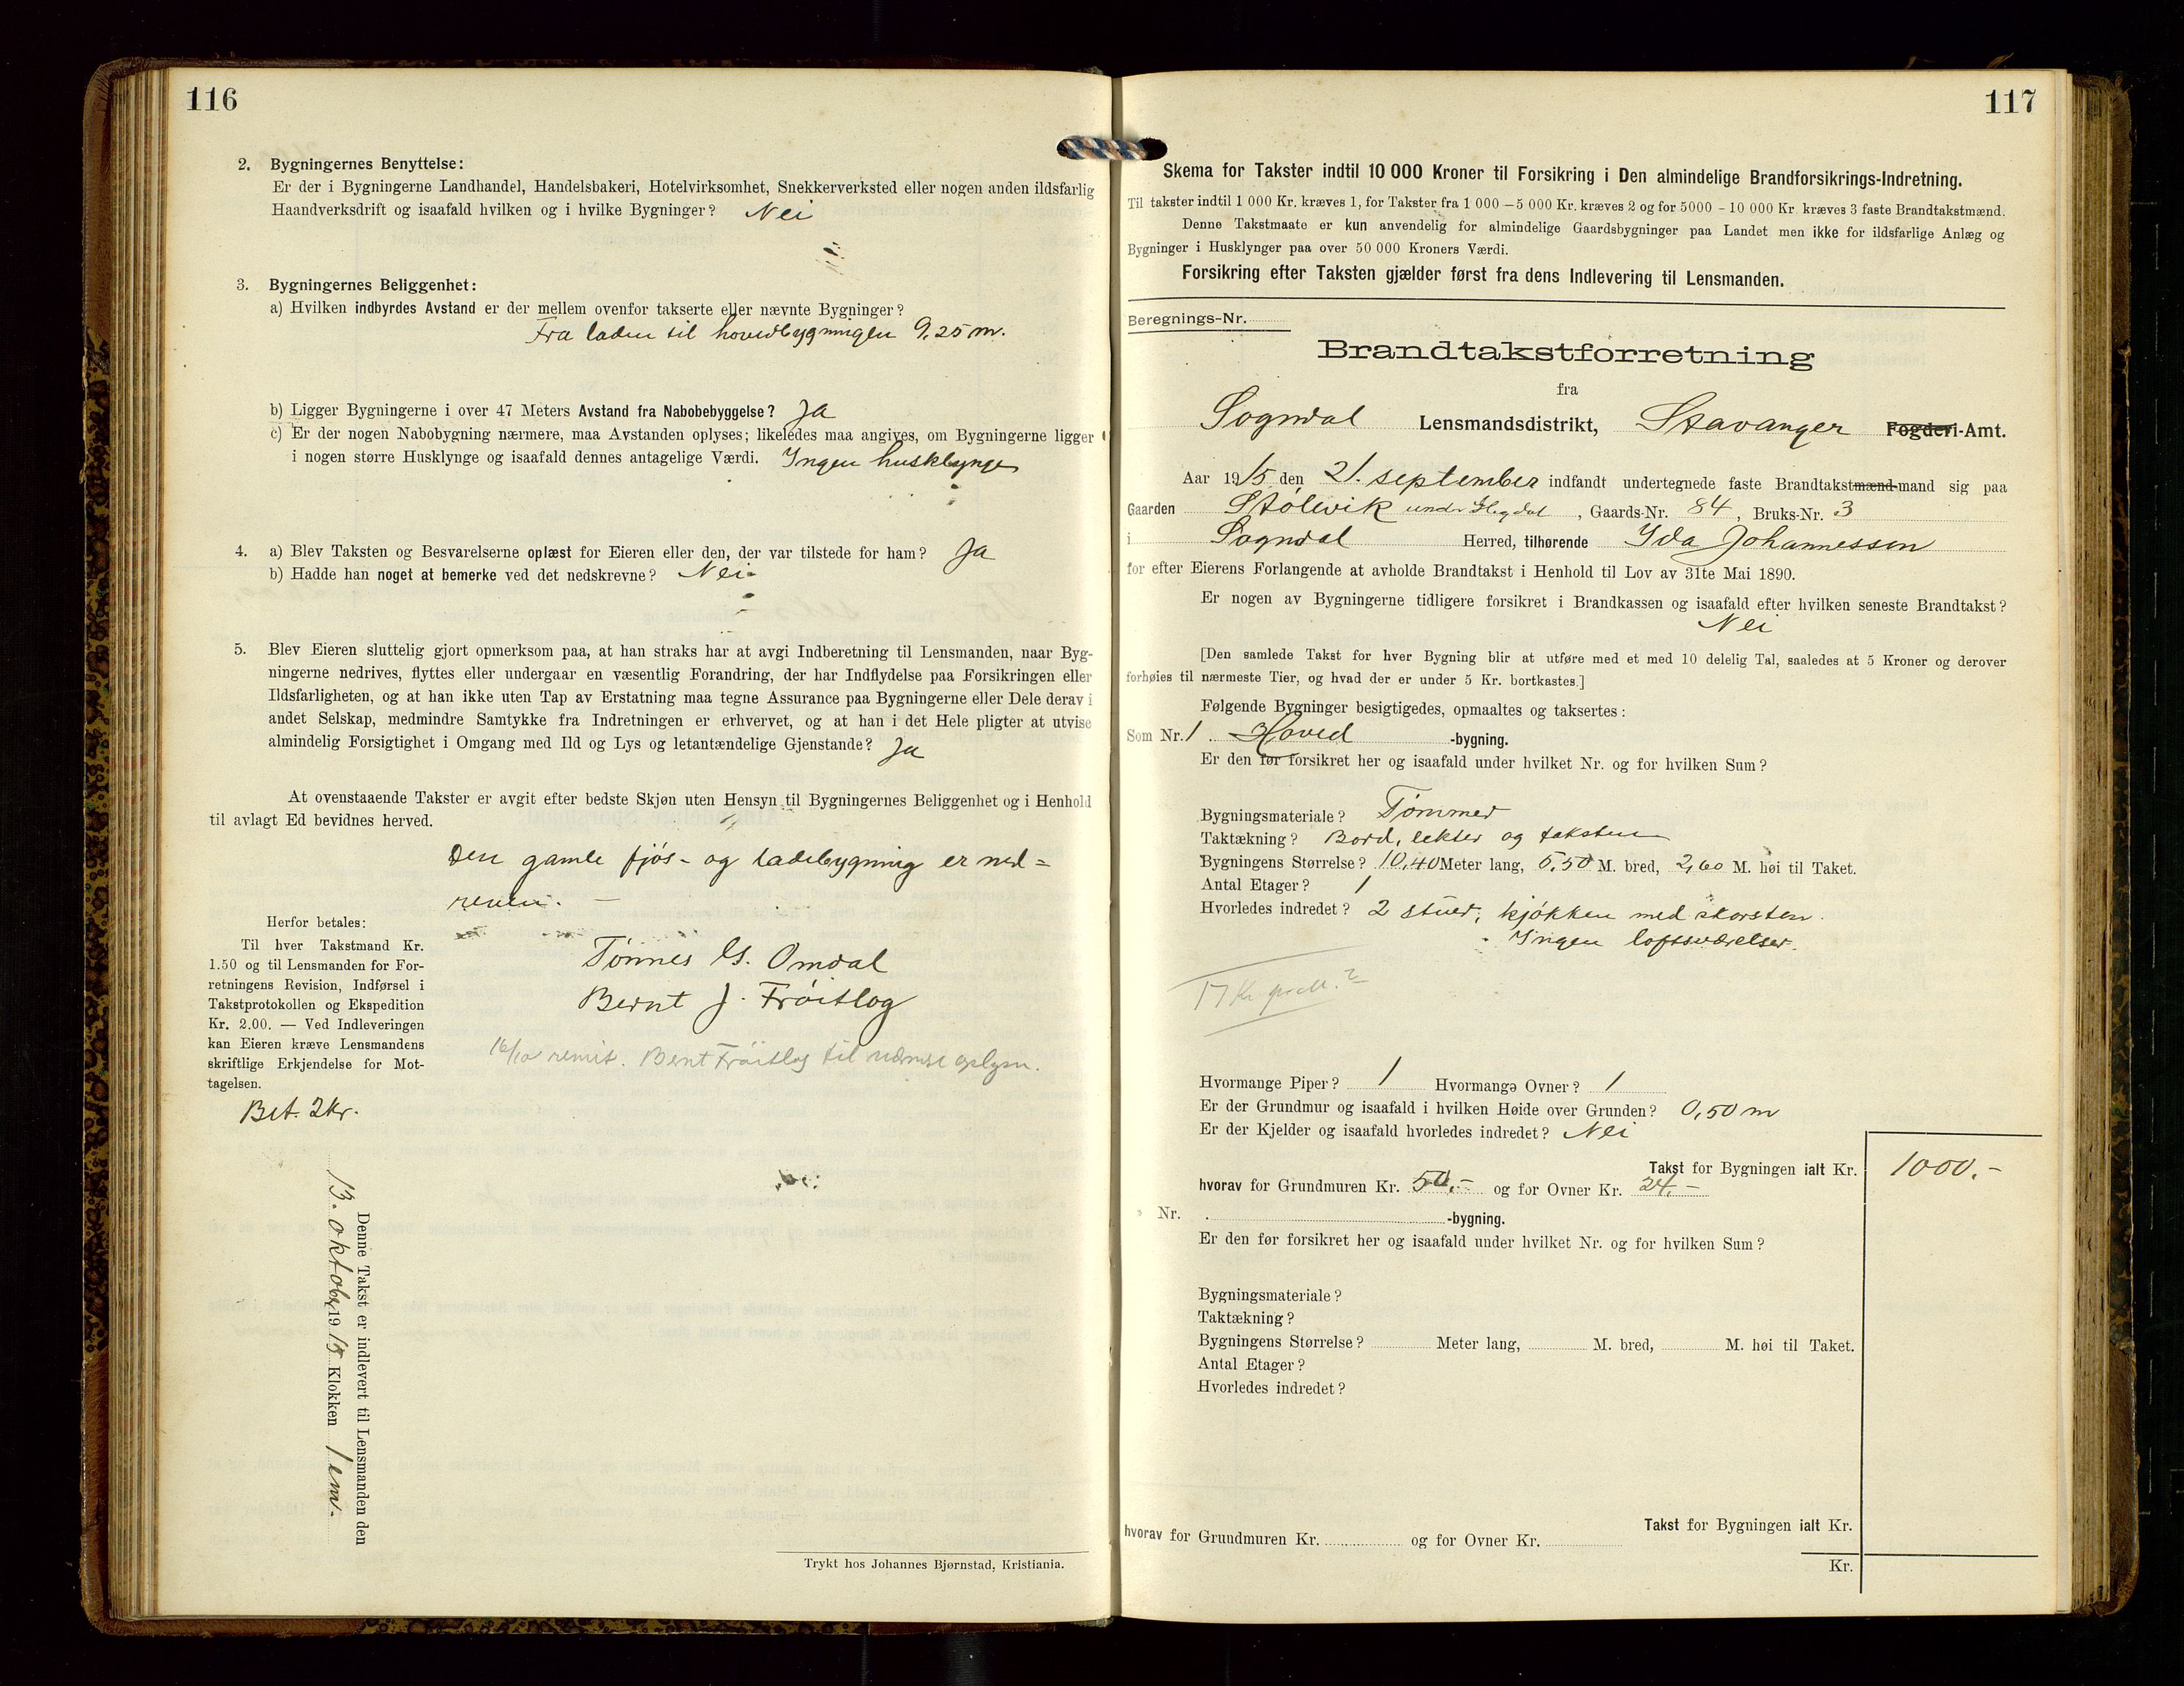 116
2. Bygningernes Benyttelse:
Er der i Bygningerne Landhandel, Handelsbakeri, Hotelvirksomhet, Snekkerverksted eller nogen anden ildsfarlig
Haandverksdrift og isaafald hvilken og i hvilke Bygninger? Nei
3. Bygningernes Beliggenhet:
a) Hvilken indbyrdes Avstand er der mellem ovenfor takserte eller nævnte Bygninger?
Fra laden til hovedbygningen 9,25 m.
b) Ligger Bygningerne i over 47 Meters Avstand fra Nabobebyggelse? Ja
c) Er der nogen Nabobygning nærmere, maa Avstanden oplyses; likeledes maa angives, om Bygningerne ligger
i nogen større Husklynge og isaafald dennes antagelige Værdi. Ingen husklynge
4. a) Blev Taksten og Besvarelserne oplæst for Eieren eller den, der var tilstede for ham? Ja
b) Hadde han noget at bemerke ved det nedskrevne? Nei
5. Blev Eieren sluttelig gjort opmerksom paa, at han straks har at avgi Indberetning til Lensmanden, naar Byg-
ningerne nedrives, flyttes eller undergaar en væsentlig Forandring, der har Indflydelse paa Forsikringen eller
Ildsfarligheten, og at han ikke uten Tap av Erstatning maa tegne Assurance paa Bygningerne eller Dele derav i
andet Selskap, medmindre Samtykke fra Indretningen er erhvervet, og at han i det Hele pligter at utvise
almindelig Forsigtighet i Omgang med Ild og Lys og letantændelige Gjenstande? Ja
At ovenstaaende Takster er avgit efter bedste Skjøn uten Hensyn til Bygningernes Beliggenhet og i Henhold
til avlagt Ed bevidnes herved.
Den gamle fjøs- og ladebygning er ned=
reven. —
Tønnes G. Omdal
Bernt J. Frøitlog
16/10 remit. Bernt Frøitlog til nærmere oplysn.
Herfor betales:
Til hver Takstmand Kr.
1.50 og til Lensmanden for For-
retningens Revision, Indførsel i
Takstprotokollen og Ekspedition
Kr. 2.00. — Ved Indleveringen
kan Eieren kræve Lensmandens
skriftlige Erkjendelse for Mot-
tagelsen.
Bet. 2 kr.
Denne Takst er indlevert til Lensmanden den
13. oktober 1915 Klokken 1 em.
Trykt hos Johannes Bjørnstad, Kristiania.
117
Skema for Takster indtil 10 000 Kroner til Forsikring i Den almindelige Brandforsikrings-Indretning.
Til takster indtil 1 000 Kr. kræves 1, for Takster fra 1 000 – 5 000 Kr. kræves 2 og for 5000 – 10 000 Kr. kræves 3 faste Brandtakstmænd.
Denne Takstmaate er kun anvendelig for almindelige Gaardsbygninger paa Landet men ikke for ildsfarlige Anlæg og
Bygninger i Husklynger paa over 50 000 Kroners Værdi.
Forsikring efter Taksten gjælder først fra dens Indlevering til Lensmanden.
Beregnings-Nr.
Brandtakstforretning
fra
Sogndal Lensmandsdistrikt, Stavanger Fogderi-Amt.
Aar 1915 den 21. september indfandt undertegnede faste Brandtakstmænd-mand sig paa
Gaarden Stølevik under , Gaards-Nr. 84, Bruks-Nr. 3
i Sogndal Herred, tilhørende Ida Johannessen
for efter Eierens Forlangende at avholde Brandtakst i Henhold til Lov av 31te Mai 1890.
Er nogen av Bygningerne tidligere forsikret i Brandkassen og isaafald efter hvilken seneste Brandtakst?
Nei
[Den samlede Takst for hver Bygning blir at utføre med et med 10 delelig Tal, saaledes at 5 Kroner og derover
forhøies til nærmeste Tier, og hvad der er under 5 Kr. bortkastes.]
Følgende Bygninger besigtigedes, opmaaltes og taksertes:
Som Nr. 1. Hoved -bygning.
Er den før forsikret her og isaafald under hvilket Nr. og for hvilken Sum?
Bygningsmateriale? Tømmer
Taktækning? Bord, lekter og taksten
Bygningens Størrelse? 10,40 Meter lang, 5,50 M. bred, 2,60 M. høi til Taket.
Antal Etager? 1
Hvorledes indredet? 2 stuer, kjøkken med skorsten.
Ingen loftsværelser.
17 Kr.
Hvormange Piper? 1 Hvormange Ovner? 1
Er der Grundmur og isaafald i hvilken Høide over Grunden? 0,50 m
Er der Kjelder og isaafald hvorledes indredet? Nei
Takst for Bygningen ialt Kr. 1000.-
hvorav for Grundmuren Kr. 50.- og for Ovner Kr. 24.-
Nr. -bygning.
Er den før forsikret her og isaafald under hvilket Nr. og for hvilken Sum?
Bygningsmateriale?
Taktækning?
Bygningens Størrelse? Meter lang, M. bred, M. høi til Taket.
Antal Etager?
Hvorledes indredet?
Takst for Bygningen ialt Kr.
hvorav for Grundmuren Kr. og for Ovner Kr.
Kr.